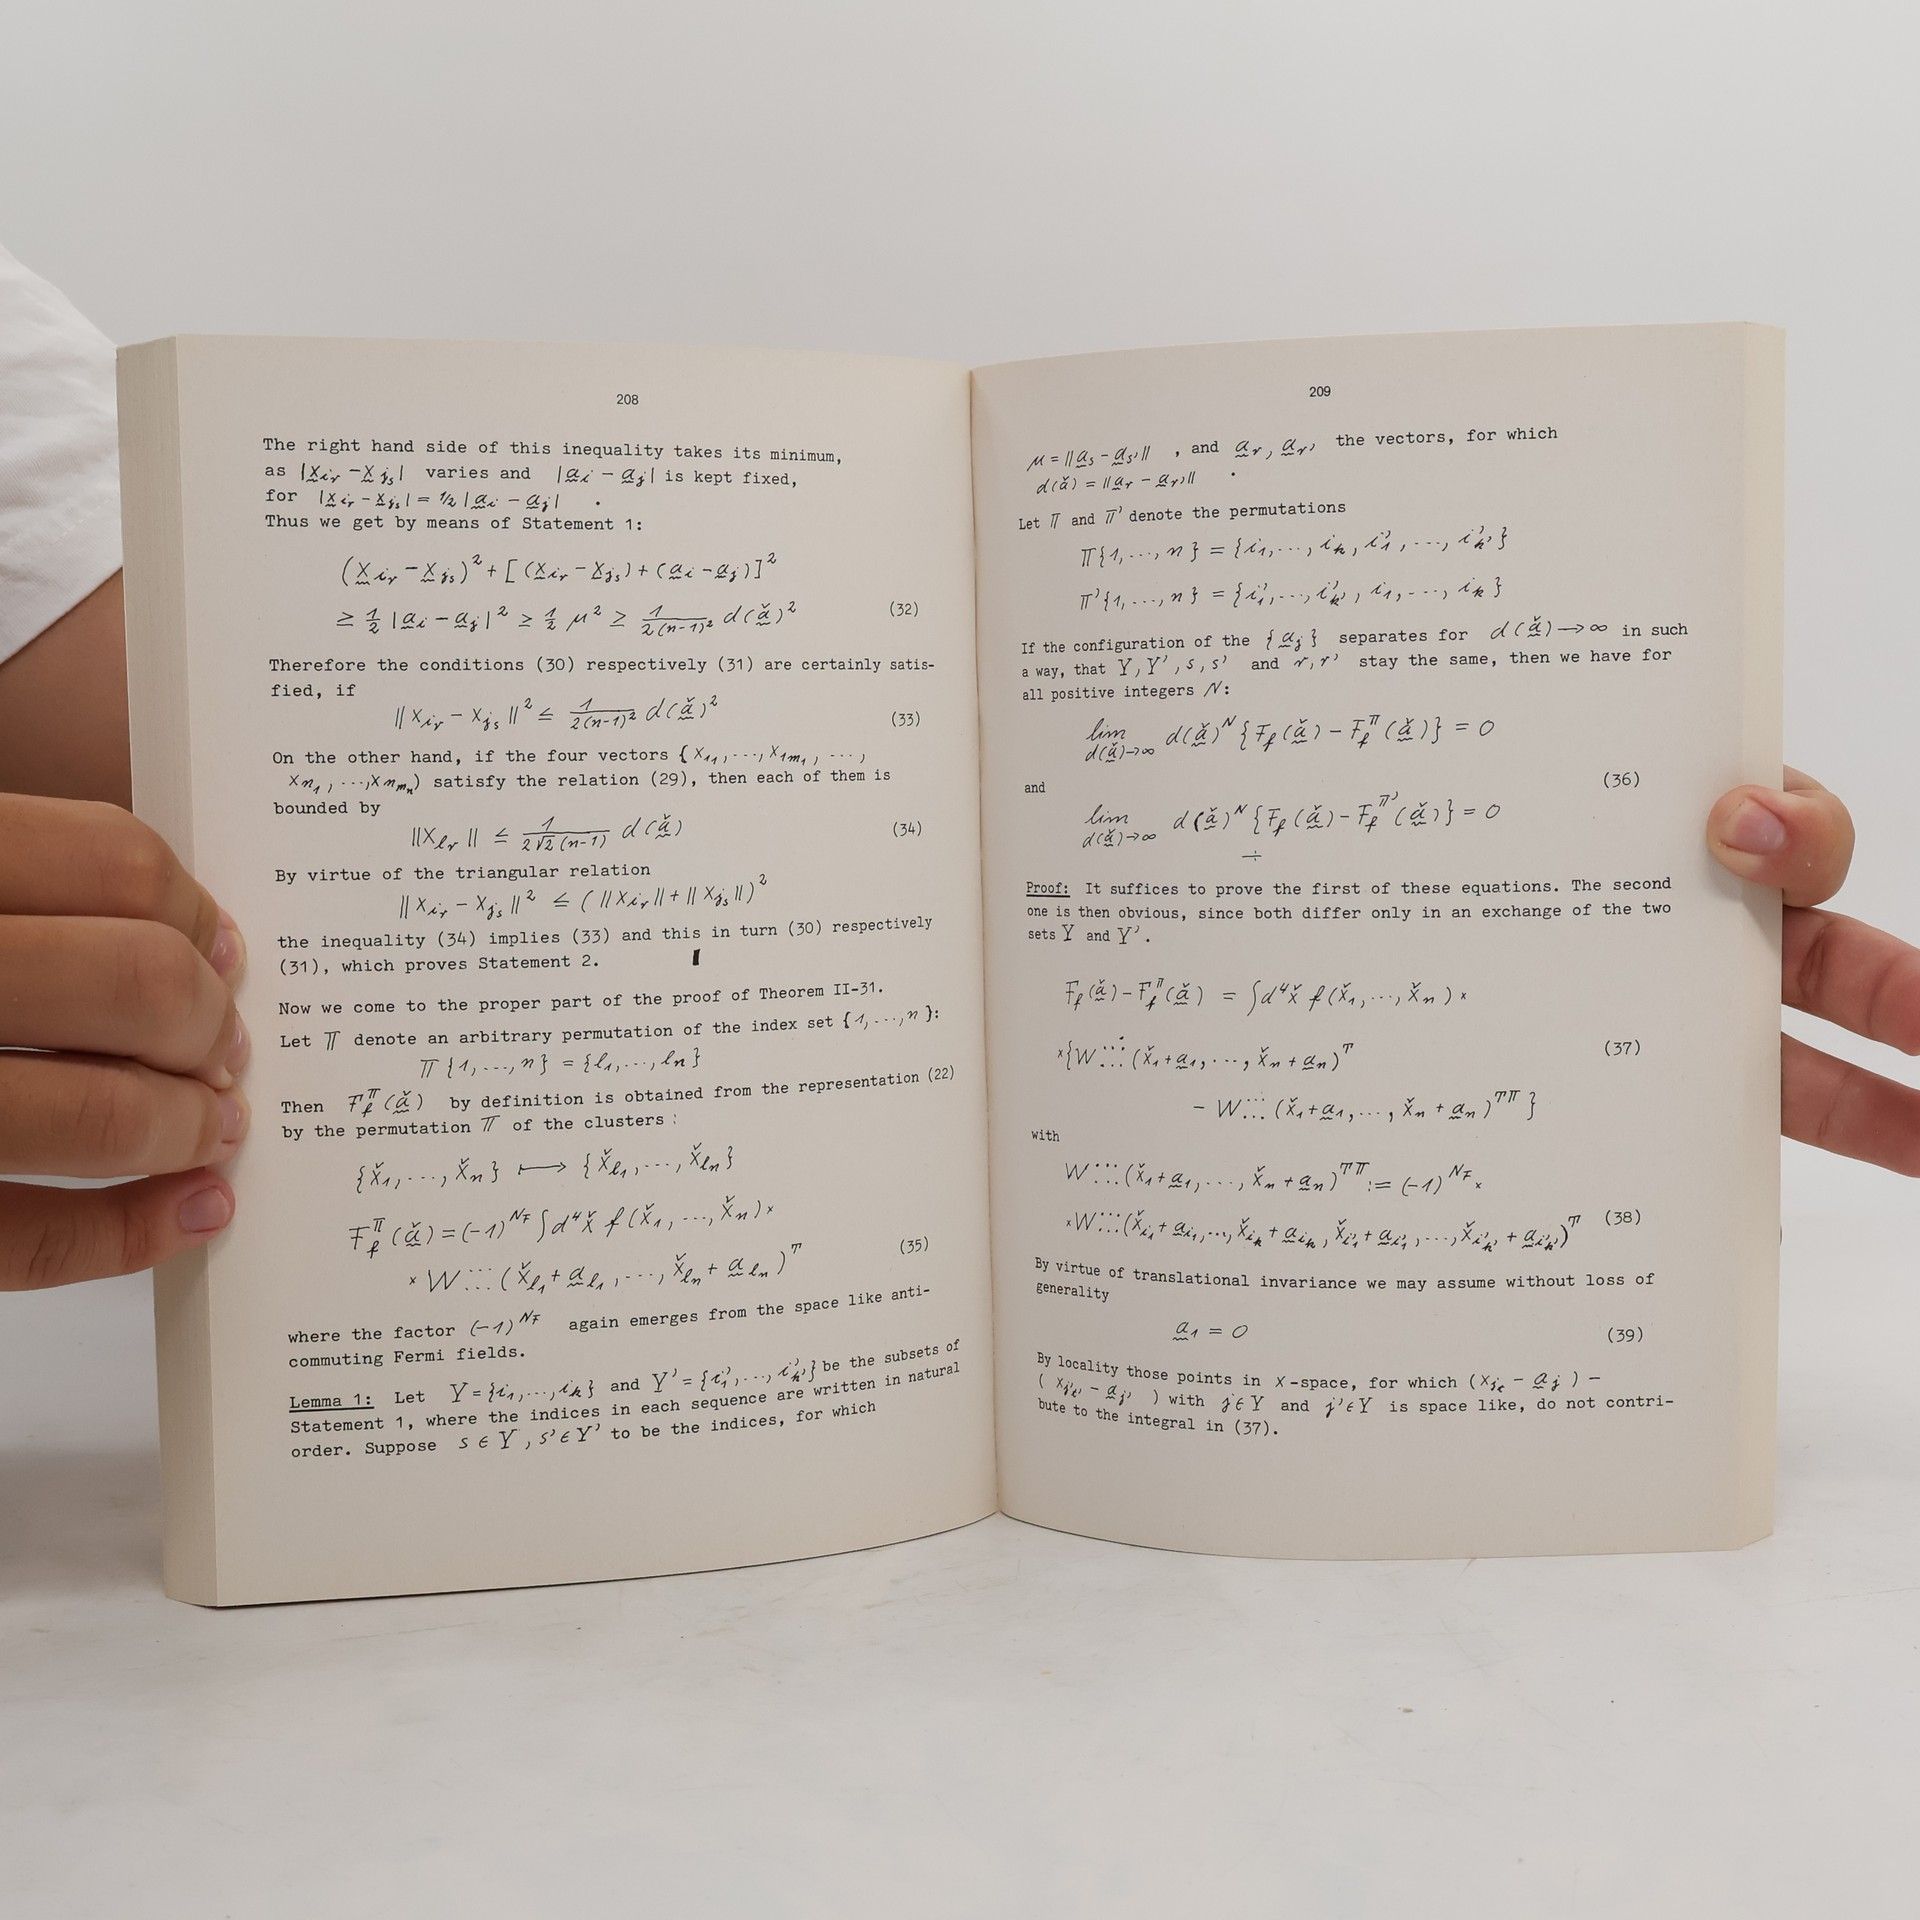 208
The right hand side of this inequality takes its minimum,
as |x̰_ir − x̰_js| varies and |a̰_i − a̰_j| is kept fixed,
for |x̰_ir − x̰_js| = 1/2 |a̰_i − a̰_j| .
Thus we get by means of Statement 1:
(x̰_ir − x̰_js)² + [(x̰_ir − x̰_js) + (a̰_i − a̰_j)]²
≥ 1/2 |a̰_i − a̰_j|² ≥ 1/2 μ² ≥ 1/(2(n-1)²) d(ǎ̰)² (32)
Therefore the conditions (30) respectively (31) are certainly satis-
fied, if
‖x_ir − x_js‖² ≤ 1/(2(n-1)²) d(ǎ̰)² (33)
On the other hand, if the four vectors {x_11, ..., x_1m_1, ...,
x_n1, ..., x_nm_n) satisfy the relation (29), then each of them is
bounded by
‖x_lr‖ ≤ 1/(2√2(n-1)) d(ǎ̰) (34)
By virtue of the triangular relation
‖x_ir − x_js‖² ≤ (‖x_ir‖ + ‖x_js‖)²
the inequality (34) implies (33) and this in turn (30) respectively
(31), which proves Statement 2.
Now we come to the proper part of the proof of Theorem II-31.
Let π denote an arbitrary permutation of the index set {1, ..., n}:
π{1, ..., n} = {l_1, ..., l_n}
Then F_f^π(ǎ̰) by definition is obtained from the representation (22)
by the permutation π of the clusters:
{x̌_1, ..., x̌_n} ⟼ {x̌_l_1, ..., x̌_l_n}
F_f^π(ǎ̰) = (−1)^N_F ∫d⁴x̌ f(x̌_1, ..., x̌_n) ×
× W⋮⋮⋮(x̌_l_1 + a̰_l_1, ..., x̌_l_n + a̰_l_n)^T (35)
where the factor (−1)^N_F again emerges from the space like anti-
commuting Fermi fields.
Lemma 1: Let Y = {i_1, ..., i_k} and Y' = {i'_1, ..., i'_k'} be the subsets of
Statement 1, where the indices in each sequence are written in natural
order. Suppose s ∈ Y, s' ∈ Y' to be the indices, for which
209
μ = ‖a̰_s − a̰_s'‖ , and a̰_r, a̰_r' the vectors, for which
d(ǎ̰) = ‖a̰_r − a̰_r'‖ .
Let π and π' denote the permutations
π{1, ..., n} = {i_1, ..., i_k, i'_1, ..., i'_k'}
π'{1, ..., n} = {i'_1, ..., i'_k', i_1, ..., i_k}
If the configuration of the {a̰_j} separates for d(ǎ̰) → ∞ in such
a way, that Y, Y', s, s' and r, r' stay the same, then we have for
all positive integers N:
lim_{d(ǎ̰)→∞} d(ǎ̰)^N {F_f(ǎ̰) − F_f^π(ǎ̰)} = 0
and (36)
lim_{d(ǎ̰)→∞} d(ǎ̰)^N {F_f(ǎ̰) − F_f^π'(ǎ̰)} = 0
÷
Proof: It suffices to prove the first of these equations. The second
one is then obvious, since both differ only in an exchange of the two
sets Y and Y'.
F_f(ǎ̰) − F_f^π(ǎ̰) = ∫d⁴x̌ f(x̌_1, ..., x̌_n) ×
×{W⋮⋮⋮(x̌_1 + a̰_1, ..., x̌_n + a̰_n)^T (37)
− W⋮⋮⋮(x̌_1 + a̰_1, ..., x̌_n + a̰_n)^Tπ}
with
W⋮⋮⋮(x̌_1 + a̰_1, ..., x̌_n + a̰_n)^Tπ := (−1)^N_F ×
×W⋮⋮⋮(x̌_i_1 + a̰_i_1, ..., x̌_i_k + a̰_i_k, x̌_i'_1 + a̰_i'_1, ..., x̌_i'_k' + a̰_i'_k')^T (38)
By virtue of translational invariance we may assume without loss of
generality
a̰_1 = 0 (39)
By locality those points in x-space, for which (x_jt − a̰_j) −
(x_j't' − a̰_j') with j∈Y and j'∈Y is space like, do not contri-
bute to the integral in (37).